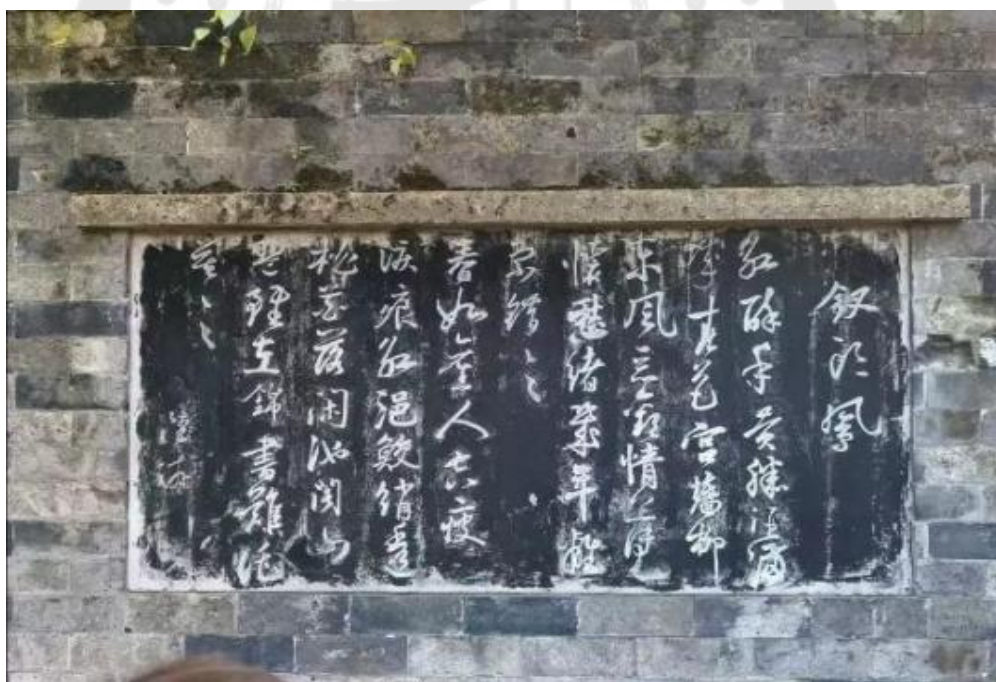 釵头鳳
紅酥手黄縢酒滿
城春色宫墙柳
東風惡歡情薄一
懷愁緒幾年離
索錯々々
春如舊人空瘦
淚痕紅浥鮫綃透
桃花落闲池閣山
盟雖在錦書難托
莫々々